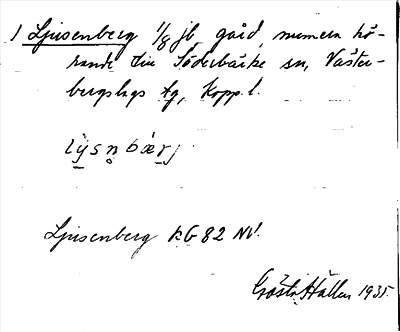 1 Ljusenberg 1/8 jb, gård, numera hö-
rande till Söderbärke sn, Väster-
bergslags tg, Kopp. l.
lysnbærj
Ljusenberg RG 82 NV.
Gösta Hallen 1935